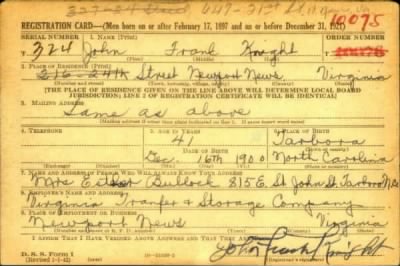 647-21st St.
REGISTRATION CARD—(Men born on or after February 17, 1897 and on or before December 31, 1921)
SERIAL NUMBER 1. NAME (Print) ORDER NUMBER
10075
324 John Frank Knight
2. PLACE OF RESIDENCE (Print)
216-24th Street Newport News, Virginia
[THE PLACE OF RESIDENCE GIVEN ON THE LINE ABOVE WILL DETERMINE LOCAL BOARD
JURISDICTION; LINE 2 OF REGISTRATION CERTIFICATE WILL BE IDENTICAL]
3. MAILING ADDRESS
Same as above
4. TELEPHONE 5. AGE IN YEARS 6. PLACE OF BIRTH
41 Tarboro
DATE OF BIRTH
Dec. 16th 1900 North Carolina
7. NAME AND ADDRESS OF PERSON WHO WILL ALWAYS KNOW YOUR ADDRESS
Mrs Esther Bullock 815 E. St. John St. Tarboro N.C.
8. EMPLOYER'S NAME AND ADDRESS
Virginia Tranfer & Storage Company
9. PLACE OF EMPLOYMENT OR BUSINESS
Newport News Virginia
I AFFIRM THAT I HAVE VERIFIED ABOVE ANSWERS AND THAT THEY ARE TRUE.
John Frank Knight
D. S. S. Form 1
(Revised 1-1-42)